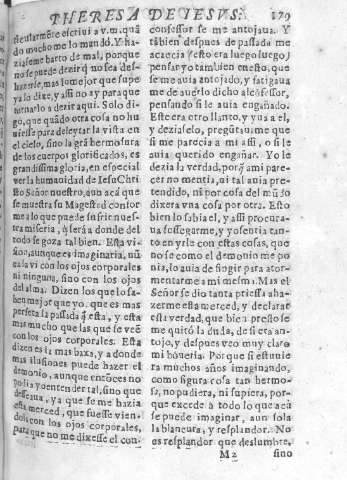 THERESA DE IESVS. 179
se escriui a v.m. quã
do mucho me lo mandó. Y ha
ziaseme harto de mal, porque
no se puede dezir q̃ no sea des-
hazerse, mas lo mejor que supe
ya lo dixe, y assi no ay para que
tornarlo a dezir aqui. Solo di-
go, quã quãdo otra cosa no hu
uiesse para deleytar la vista en
el cielo, sino la grã hermosura
de los cuerpos glorificados, es
grandissima gloria, en especial
ver la humanidad de IesuChri
sto Señor nuestro, aun acá que
se muestra su Magestad confor
me a lo que puede sufrir nues-
tra miseria, q̃ será a donde del
todo se goza tal bien. Esta vi-
sion, aunque es imaginaria, nũ
ca la vi con los ojos corporales
ni ninguna, sino con los ojos
del alma. Dizen los que lo sa-
ben mejor que yo, que es mas
perfeta la passada q̃ esta, y esta
mas mucho que las que se veẽ
con los ojos corporales. Esta
dizen es la mas baxa, y a donde
mas ilusiones puede hazer el
demonio, aunque entõces no
podia yo entender tal, sino que
desseaua, ya que se me hazia
esta merced, que fuesse vien-
dola con los ojos corporales,
para que no me dixesse el con-
confessor se me antojaua. Y
tãbien despues de passada me
acaecia (esto era luego luego)
pensar yo tambien en esto, que
se me auia antojado, y fatigaua
me de auerlo dicho al cõfessor,
pensando si le auia engañado.
Este era otro llanto, y yua a el, y
deziaselo, pregũtaua me que
si me parecia a mi assi, o si le
auia querido engañar. Yo le
dezia la verdad, porq̃ a mi pare-
cer no mentia, ni tal auia pre-
tendido, ni por cosa del mũdo
dixera vna cosa por otra. Esto
bien lo sabia el, y assi procura-
ua sossegarme, y yo sentia tan-
to en yrle con estas cosas, que
no se como el demonio me po
nia, lo auia de fingir para ator-
mentarme a mi mesma. Mas el
Señor se dio tanta priessa a ha-
zerme esta merced, y declarar
esta verdad, que bien presto se
me quitó la duda, de si era an-
tojo, y despues veo muy claro
mi boueria. Porque si estuuie
ra muchos años imaginando,
como figura cosa tan hermo-
sa, no pudiera, ni supiera, por-
que excede a todo lo que acá
se puede imaginar, aun sola
la blancura, y resplandor. No
es resplandor que deslumbre,
M 2 sino